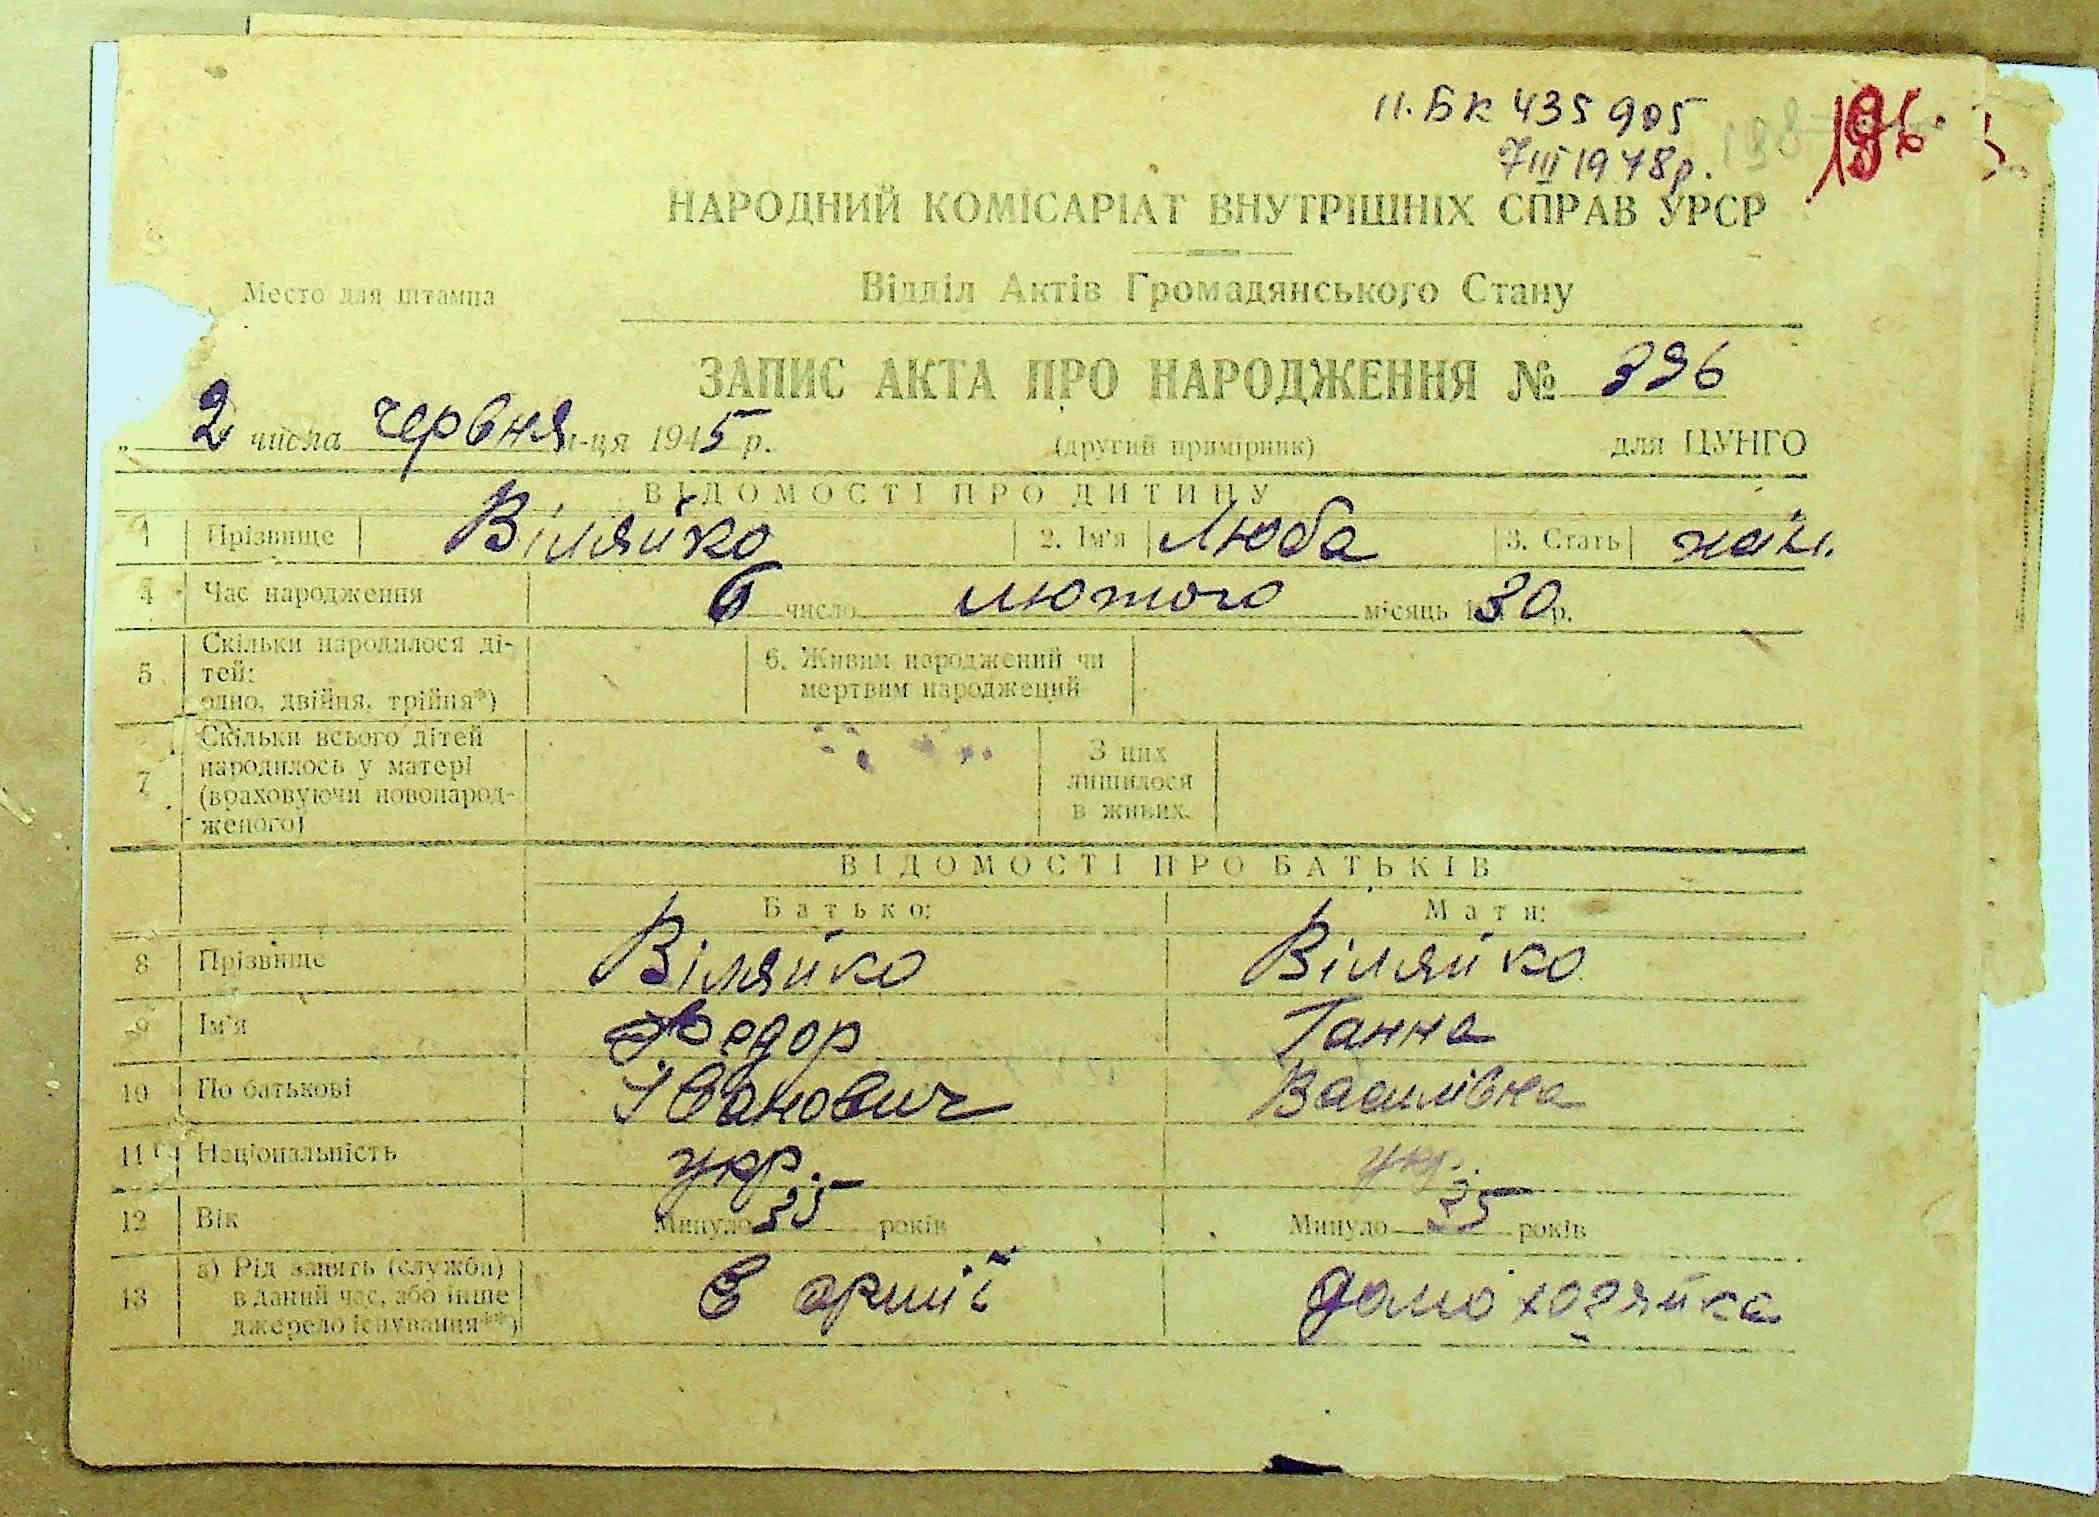 II. БК 435905
7 III 1948 р.
196
НАРОДНИЙ КОМІСАРІАТ ВНУТРІШНІХ СПРАВ УРСР
Место для штампа
Відділ Актів Громадянського Стану
ЗАПИС АКТА ПРО НАРОДЖЕННЯ № 396
„ 2 числа червня м-ця 1945 р. (другий примірник) для ЦУНГО
ВІДОМОСТІ ПРО ДИТИНУ
1 Прізвище Віляйко 2. Ім'я Люба 3. Стать
4 Час народження 6 число лютого місяць 30 р.
5 Скільки народилося ді-
тей:
одно, двійня, трійня*)
6. Живим народжений чи
мертвим народжений
7 Скільки всього дітей
народилось у матері
(враховуючи новонарод-
женого)
З них
лишилося
в живих.
ВІДОМОСТІ ПРО БАТЬКІВ
Батько: Мати:
8 Прізвище Віляйко Віляйко
9 Ім'я Федор Ганна
10 По батькові Іванович Василівна
11 Національність укр. укр.
12 Вік Минуло 35 років Минуло 35 років
13 а) Рід занять (служба)
в даний час, або інше
джерело існування**)
В армії домохозяйка